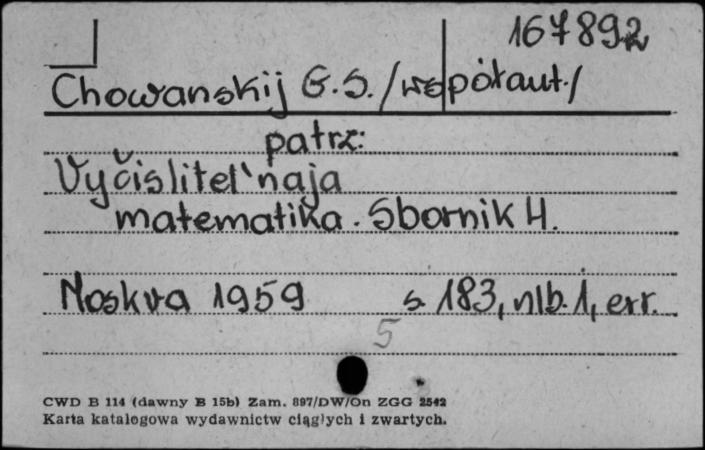 167892
Chowanskij G.S. /współaut./
patrz:
Vyčislitel'naja
matematika. Sbornik 4.
Moskva 1959 s. 183, nlb. 1, err.
5
CWD B 114 (dawny B 15b) Zam. 897/DW/On ZGG 2542
Karta katalogowa wydawnictw ciągłych i zwartych.